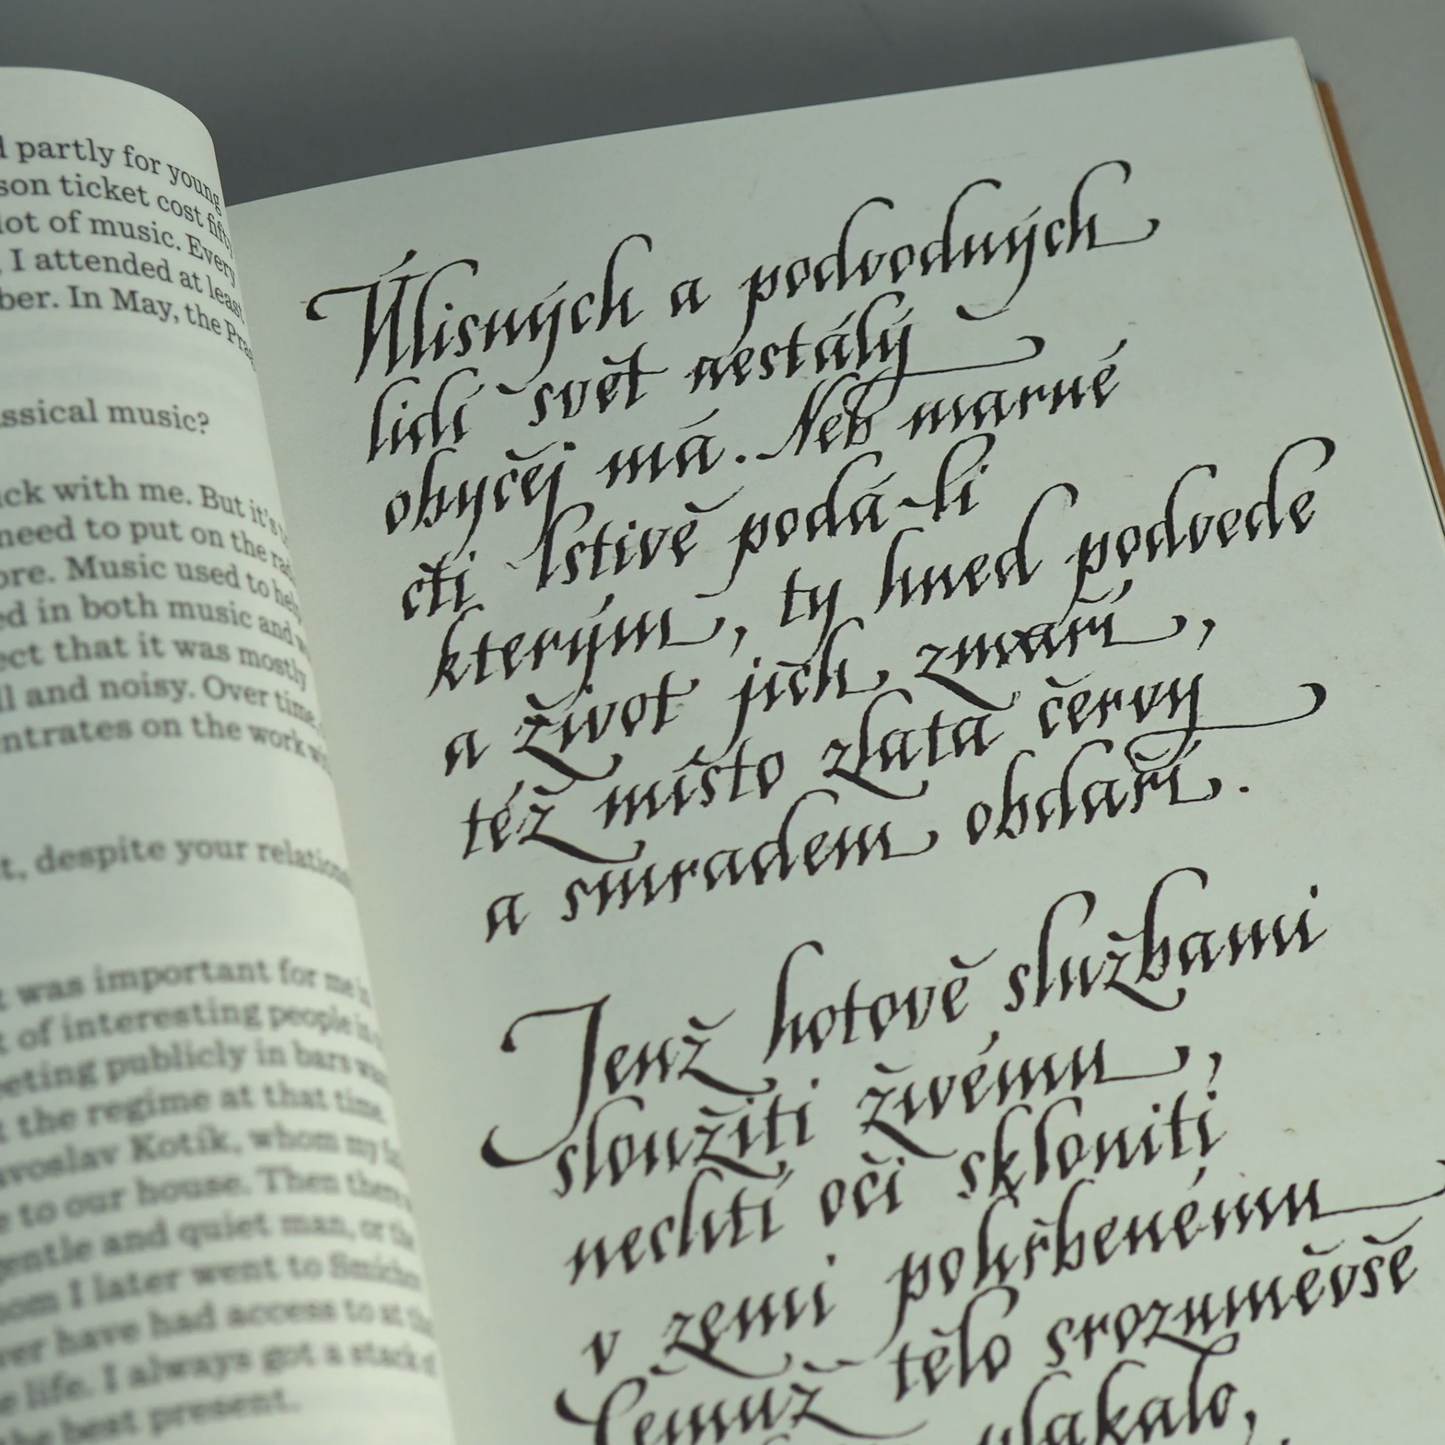 partly for young
son ticket cost fifty
lot of music. Every
, I attended at least
ber. In May, the
ssical music?
ck with me. But it's
need to put on the
ore. Music used to
ed in both music and
ect that it was mostly
ll and noisy. Over time,
ntrates on the work
t, despite your
t was important for me
of interesting people
eting publicly in bars was
the regime at that time.
Kotík, whom my
to our house. Then there
gentle and quiet man, or the
om I later went to
ver have had access to at
life. I always got a stack
the best present.
Úlisných a podvodných
lidí svět nestálý
obyčej má. Neb marné
cti lstivě podá-li
kterým, ty hned podvede
a život jich zmaří,
též místo zlata červy
a smradem obdaří.
Jenž hotově službami
sloužiti živému,
nechtí oči skloniti
v zemi pohřbenému
Čemuž tělo srozuměvše
plakalo,